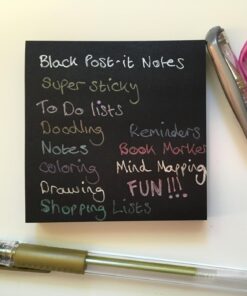 Black Post-it Notes
Super sticky
To Do lists
Doodling
Reminders
Notes
Book Marker
Coloring
Mind Mapping
Drawing
FUN!!!
Shopping Lists